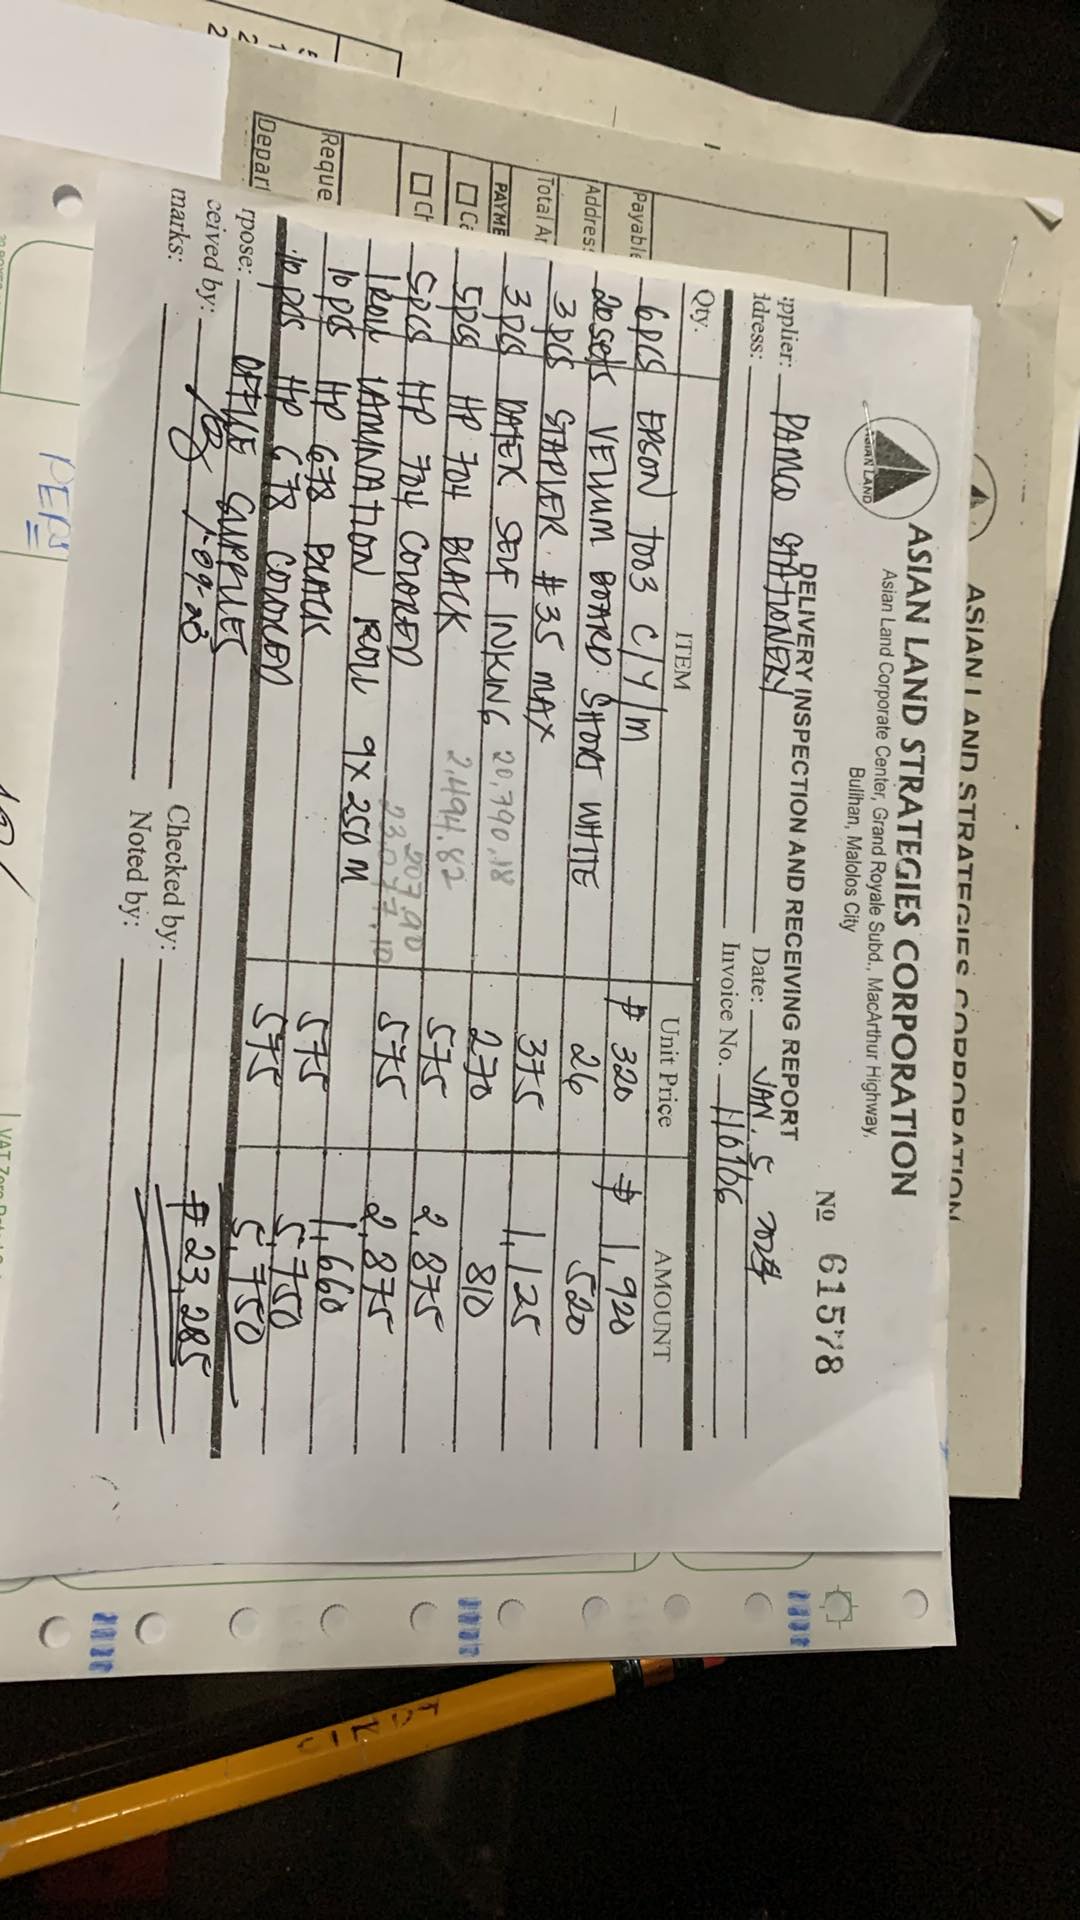 ASIAN LAND STRATEGIES CORPORATION
ASIAN LAND STRATEGIES CORPORATION
ASIAN LAND
Asian Land Corporate Center, Grand Royale Subd., MacArthur Highway,
Bulihan, Malolos City
No 61578
DELIVERY INSPECTION AND RECEIVING REPORT
pplier: PAMCO STATIONERY
Date: JAN. 5,
ddress:
Invoice No. 110106
Qty. ITEM Unit Price AMOUNT
6pcs EPSON T003 C/Y/M ₱ 320 ₱ 1,920
20 sets VELLUM BOARD SHORT WHITE 26 520
3 pcs STAPLER #35 MAX 375 1,125
3 pcs DATER SELF INKING 20,790.18 270 810
5pcs HP 704 BLACK 2,494.82 575 2,875
5pcs HP 704 COLORED 207.90 575 2,875
23,077.10
1 ROLL LAMINATION ROLL 9X250M 1,660
10 pcs HP 678 BLACK 575 5,750
10 pcs HP 678 COLORED 575 5,750
rpose: OFFICE SUPPLIES
₱ 23,285
ceived by: 1-09-23
Checked by:
marks:
Noted by:
Payable
Address
Total Am
PAYME
Ca
Ch
Reque
Depart
PEPS